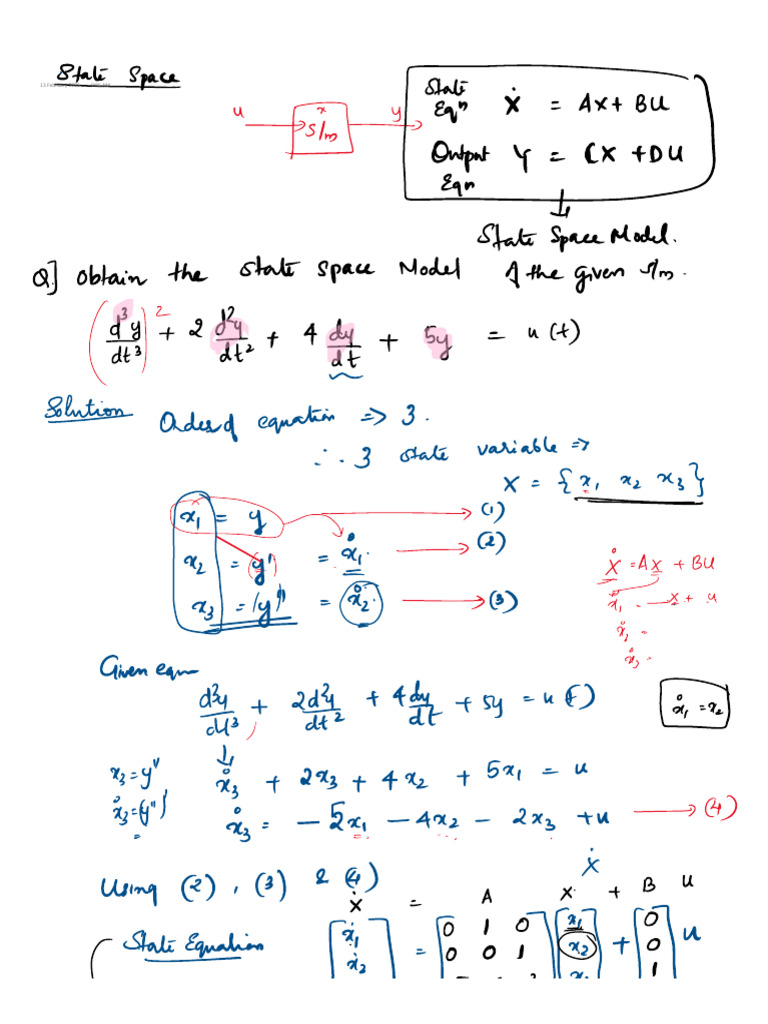 State Space
State
Eqn Ẋ = AX + BU
u x y
S/m
Output Y = CX + DU
Eqn
State Space Model.
Q] Obtain the state space Model of the given s/m.
(d³y/dt³)² + 2 d²y/dt² + 4 dy/dt + 5y = u(t)
Solution Order of equation => 3.
∴ 3 state variable =>
X = {x₁ x₂ x₃}
x₁ = y → (1)
x₂ = y' = ẋ₁ → (2)
x₃ = y'' = ẋ₂ → (3)
Ẋ = AX + BU
ẋ₁ = x + u
ẋ₂ =
ẋ₃ =
Given eqn
d³y/dt³ + 2d²y/dt² + 4dy/dt + 5y = u(t)
ẋ₁ = x₂
x₃ = y'' ẋ₃ + 2x₃ + 4x₂ + 5x₁ = u
ẋ₃ = (y'')'
ẋ₃ = -5x₁ - 4x₂ - 2x₃ + u → (4)
Ẋ
Using (2), (3) & (4)
Ẋ = A X + B U
State Equation
[ẋ₁ = [0 1 0 [x₁ + [0 u
ẋ₂ 0 0 1 x₂ 0
1